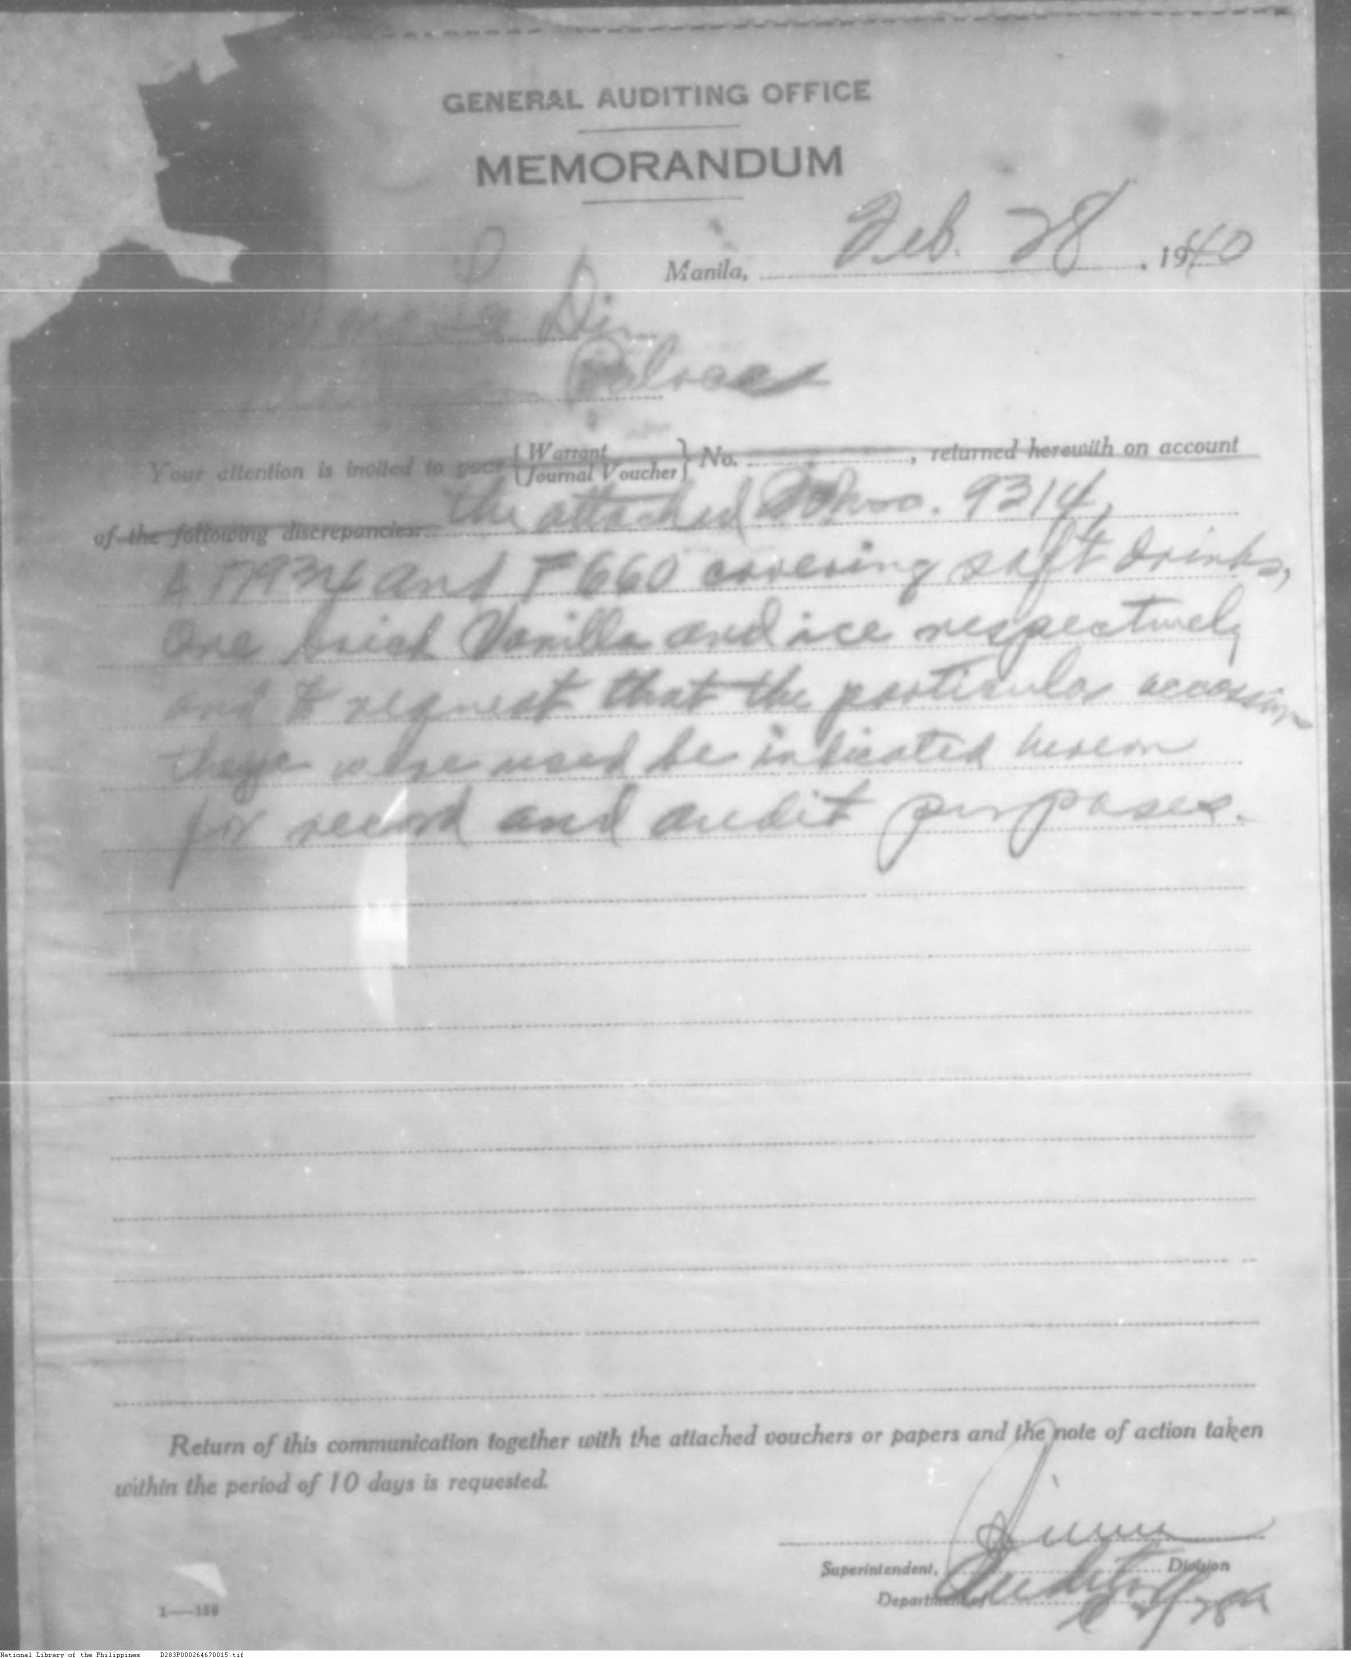 GENERAL AUDITING OFFICE
MEMORANDUM
Manila, Feb. 28, 1940
Your attention is invited to your {Warrant / Journal Voucher} No. ........, returned herewith on account
of the following discrepancies: the attached 9314,
and F 660 covering soft drinks,
one brick Vanilla and ice respectively
and to request that the particular occasion
they were used be indicated hereon
for record and audit purposes.
Return of this communication together with the attached vouchers or papers and the note of action taken
within the period of 10 days is requested.
Superintendent, Division
Department of
Auditor
1—188
National Library of the Philippines D283P000264670015.tif